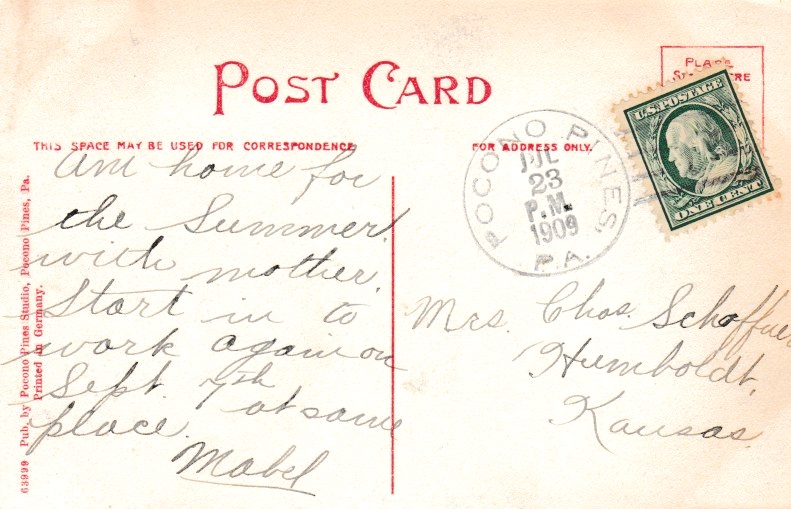 POST CARD
PLACE
THIS SPACE MAY BE USED FOR CORRESPONDENCE
FOR ADDRESS ONLY.
Am home for
the Summer
with mother.
Start in to
work again on
Sept. 7th
at same
place.
Mabel
POCONO PINES, P.A.
JUL
23
P.M.
1909
U.S. POSTAGE
ONE CENT
Mrs. Chas. Schaffner
Humboldt,
Kansas
63999 Pub. by Pocono Pines Studio, Pocono Pines, Pa.
Printed in Germany.